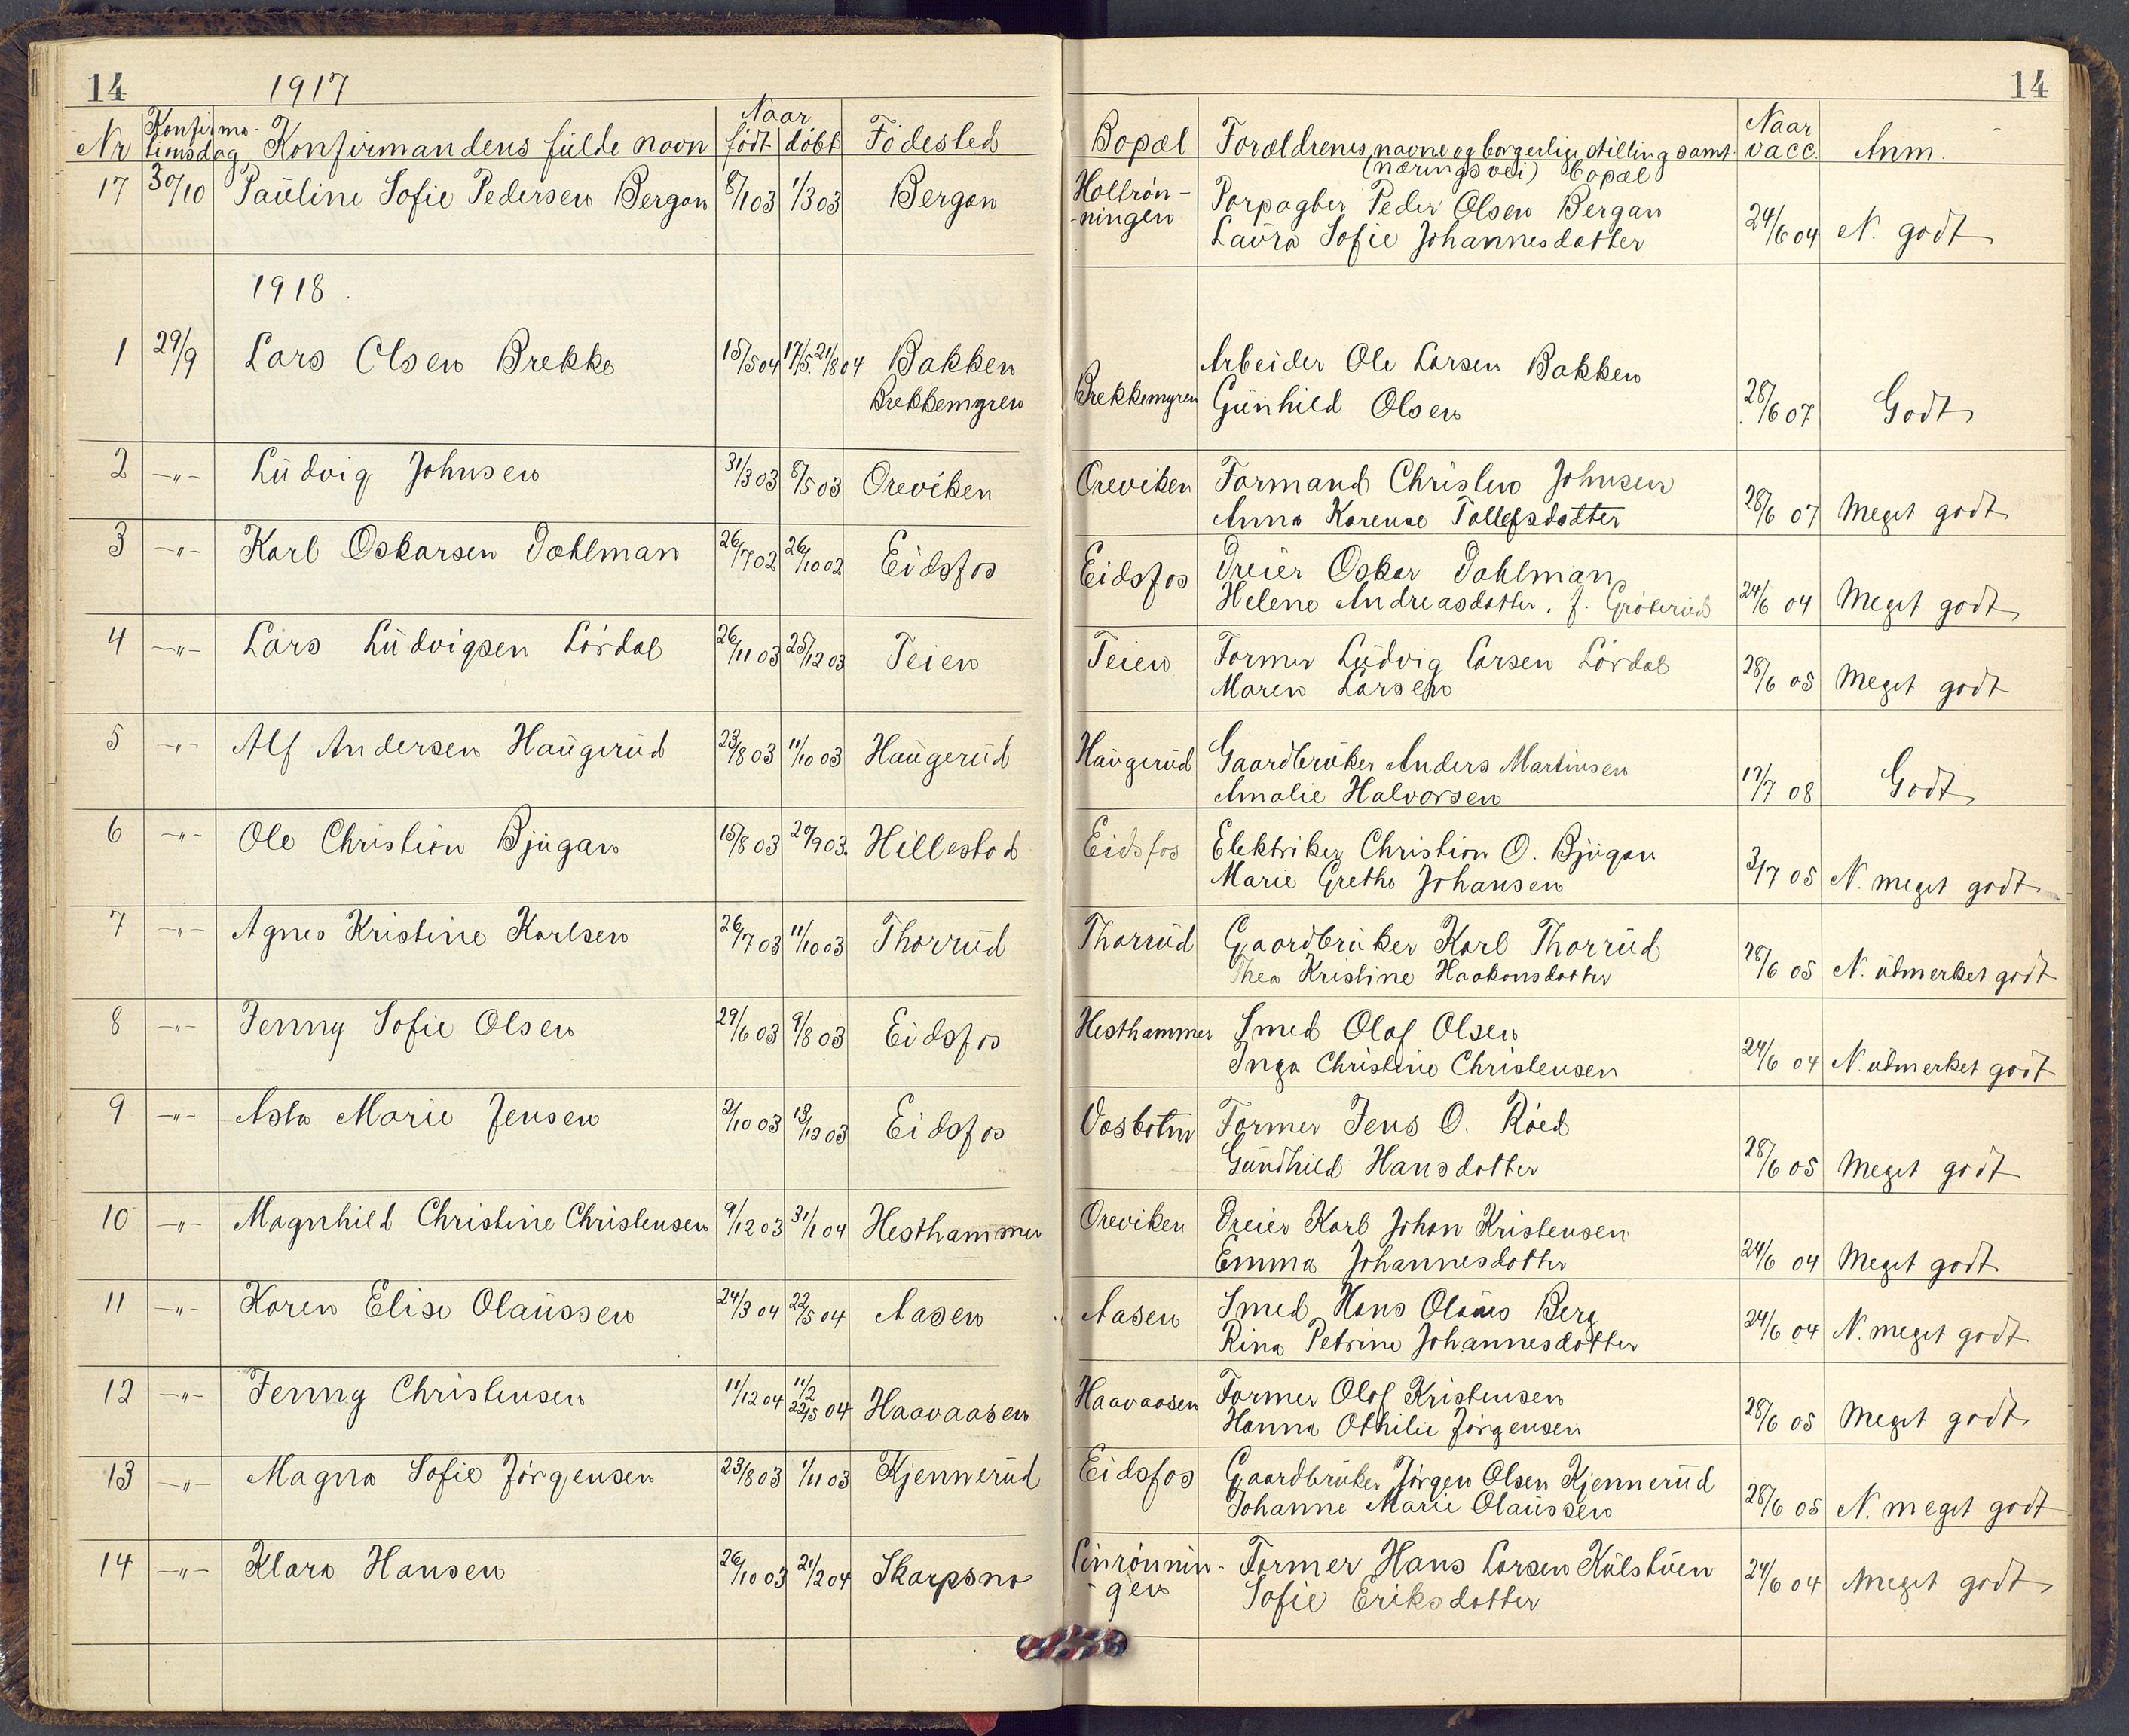 14 1917 14
Nr Konfirmationsdag Konfirmandens fulde navn Naar født døbt Fødested Bopæl Forældrenes navne og borgerlige stilling samt (næringsvei) bopæl Naar vacc. Anm.
17 30/10 Pauline Sofie Pedersen Bergan 8/1 03 1/3 03 Bergan Holtrøn- Papagter Peder Olsen Bergan 24/6 04 N. godt
-ningen Laura Sofie Johannesdatter
1918.
1 29/9 Lars Olsen Brekke 15/5 04 17/5. 21/8 04 Bakken Arbeider Ole Larsen Bakken
Brekkemyren Brekkemyren Gunhild Olsen 28/6 07 Godt
2 -„- Ludvig Johnsen 31/3 03 8/5 03 Oreviken Oreviken Formand Christen Johnsen
Anna Karense Tollefsdatter 28/6 07 Meget godt
3 -„- Karl Oskarsen Dahlman 26/7 02 26/10 02 Eidsfos Eidsfos Dreier Oskar Dahlman
Helene Andreasdatter, f. 24/6 04 Meget godt
4 -„- Lars Ludvigsen Lørdal 26/11 03 25/12 03 Teien Teien Former Ludvig Larsen Lørdal
Maren Larsen 28/6 05 Meget godt
5 -„- Alf Andersen Haugerud 23/8 03 11/10 03 Haugerud Haugerud Gaardbruker Anders Martinsen
Amalie Halvorsen 17/7 08 Godt
6 -„- Ole Christian Bjugan 15/8 03 20/9 03. Hillestad Eidsfos Elektriker Christian O. Bjugan
Marie Grethe Johansen 3/7 05 N. meget godt
7 -„- Agnes Kristine Karlsen 26/7 03 11/10 03 Thorrud Thorrud Gaardbruker Karl Thorrud
Thea Kristine Haakonsdatter 28/6 05 N. udmerket godt
8 -„- Jenny Sofie Olsen 29/6 03 9/8 03 Eidsfos Hesthammer Smed Olaf Olsen
Inga Christine Christensen 24/6 04 N. udmerket godt
9 -„- Asta Marie Jensen 2/10 03 13/12 03 Eidsfos Vasbotn Former Jens O. Røed
Gundhild Hansdatter 28/6 05 Meget godt
10 -„- Magnhild Christine Christensen 9/12 03 31/1 04 Hesthammer Oreviken Dreier Karl Johan Kristensen
Emma Johannesdatter 24/6 04 Meget godt
11 -„- Karen Elise Olaussen 24/3 04 22/5 04 Aasen Aasen Smed Hans Olaus Berg
Rina Petrine Johannesdatter 24/6 04 N. meget godt
12 -„- Jenny Christensen 11/12 04 11/2 22/5 04 Haavaasen Haavaasen Former Olaf Kristensen
Hanna Othilie Jørgensen 28/6 05 Meget godt
13 -„- Magna Sofie Jørgensen 23/8 03 1/11 03 Kjennerud Eidsfos Gaardbruker Jørgen Olsen Kjennerud
Johanne Marie Olaussen 28/6 05 N. meget godt
14 -„- Klara Hansen 26/10 03 21/2 04 Skarpsno Linrønnin- Former Hans Larsen Kulstuen 24/6 04 Meget godt
-gen Sofie Eriksdatter